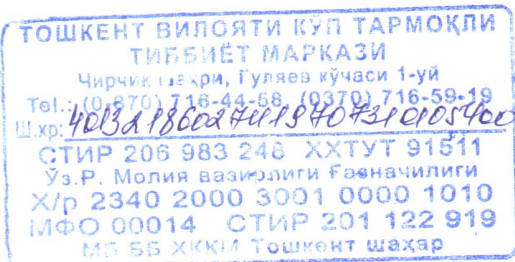 ТОШКЕНТ ВИЛОЯТИ КЎП ТАРМОҚЛИ
ТИББИЁТ МАРКАЗИ
Чирчиқ шаҳри, Гуляев кўчаси 1-уй
Tel.: (0-870) 716-44-58, (0370) 716-59-19
Ш.хр:
СТИР 206 983 246 ХХТУТ 91511
Ўз.Р. Молия вазирлиги Ғазначилиги
Х/р 2340 2000 3001 0000 1010
МФО 00014 СТИР 201 122 919
МБ ББ ХККМ Тошкент шаҳар